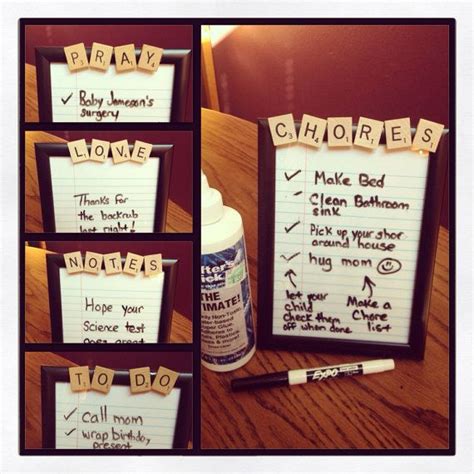 PRAY
✓ Baby Jameson's
surgery
LOVE
Thanks for
the backrub
last night!
NOTES
Hope your
Science test
goes great
TO DO
✓ call mom
✓ wrap birthday
present
CHORES
✓ Make Bed
Clean Bathroom
sink
✓ Pick up your
around house
✓ hug mom
let your
child
check them
off when done
Make a
Chore
list
THE
Non-Toxic
Glue
Adheres to
Plastics,
EXPO